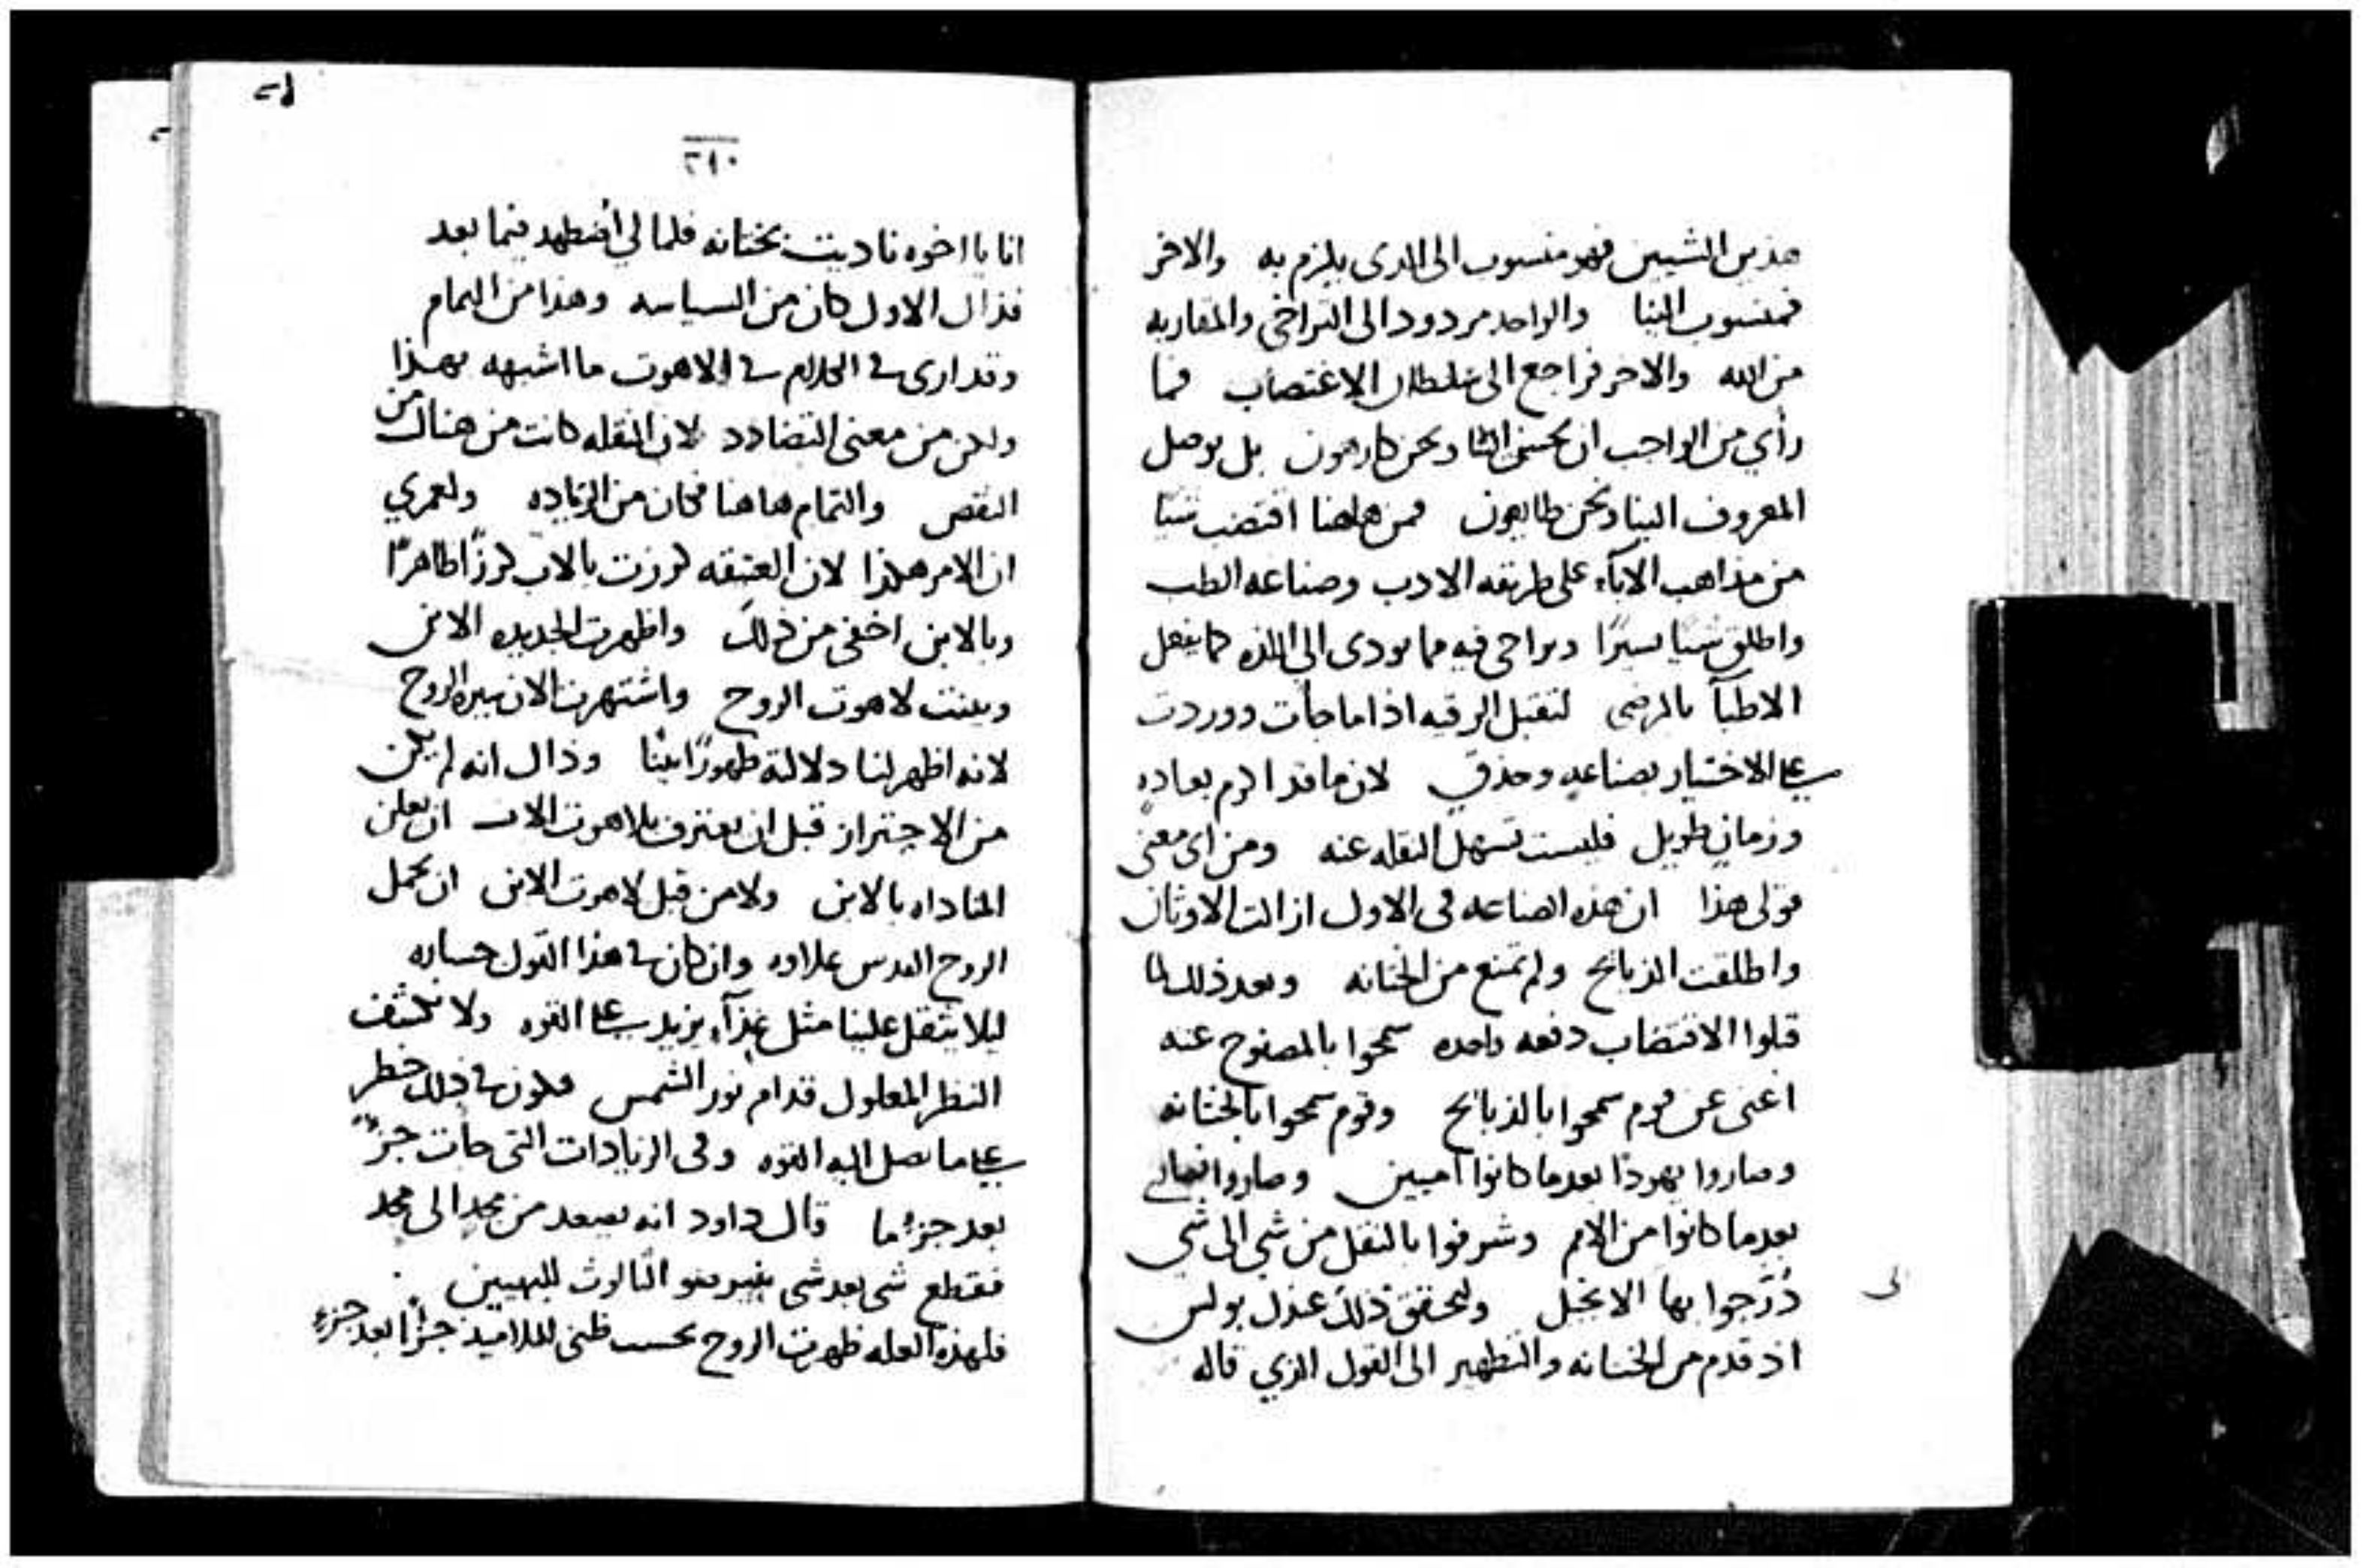 هذين الشيين فهو منسوب الى الدى يلزم به والاخر
فمنسوب الينا والواحد مردود الى التراخى والمقاربه
من الله والاخر فراجع الى سلطان الاغتصاب فما
رأي من الواجب ان يحسن الينا ونحن كارهون بل يوصل
المعروف الينا ونحن طايعون فمن هاهنا اقتضب شيا
من مذاهب الابآء على طريقه الادب وصناعه الطب
واطلق شيا يسيرًا وتراخى فيه مما يودى الى اللذه كما يفعل
الاطبآ بالمرضى لتقبل الرقيه اذا ما جأت ووردت
على الاختيار بصناعهٍ وحذقٍ لان ما قد اكرم بعادهٍ
وزمانٍ طويل فليست تسهل النقله عنه ومن اى معنى
قولى هذا ان هذه الصناعه فى الاول ازالت الاوثان
واطلقت الذبايح ولم تمنع من الختانه وبعد ذلك لما
قبلوا الاقتضاب دفعه واحده سمحوا بالمصفوح عنه
اعنى عن قوم سمحوا بالذبايح وقوم سمحوا بالختانه
وصاروا يهودًا بعدما كانوا امميين وصاروا نصارى
بعدما كانوا من الامم وشرفوا بالنقل من شي الى شي
دُرّجوا بها الانجيل وليحقق ذلك عندك بولس
اذ قدم من الختانه والتطهير الى القول الذي قاله
٢١٠
انا يا اخوه ناديت بختانه فلما لي أضطهد فيما بعد
فذاك الاول كان من السياسه وهذا من التمام
وقد ارى في الكلام في الاهوت ما اشبهه بهذا
ولكن من معنى التضادد لان النقله كانت من هناك من
النقص والتمام هاهنا فكان من الزياده ولعمري
ان الامر هكذا لان العتيقه كرزت بالاب كرزًا ظاهرًا
وبالابن اخفى من ذلك واظهرت الجديده الابن
وبينت لاهوت الروح واشتهرت الان سيره الروح
لانه اظهر لنا دلالته ظهورًا بينًا وذاك انه لم يكن
من الاحتراز قبل ان يعترف بلاهوت الاب ان يعلن
المناداه بالابن ولا من قبل لاهوت الابن ان يحمل
الروح القدس علاوه وان كان في هذا القول جساره
ليلا يثقل علينا مثل غذآءٍ يزيد على القوه ولا نكشف
النظر المعلول قدام نور الشمس فيكون في ذلك خطر
على ما تصل اليه القوه وفى الزيادات التى جأت جزءٌ
بعد جزءٍ ما قال داود انه يصعد من مجدٍ الى مجد
فقطع شى بعد شى ينير ضو الثالوث للبهيين
فلهذه العله ظهرت الروح بحسب ظنى للتلاميذ جزءًا بعد جزءٍ